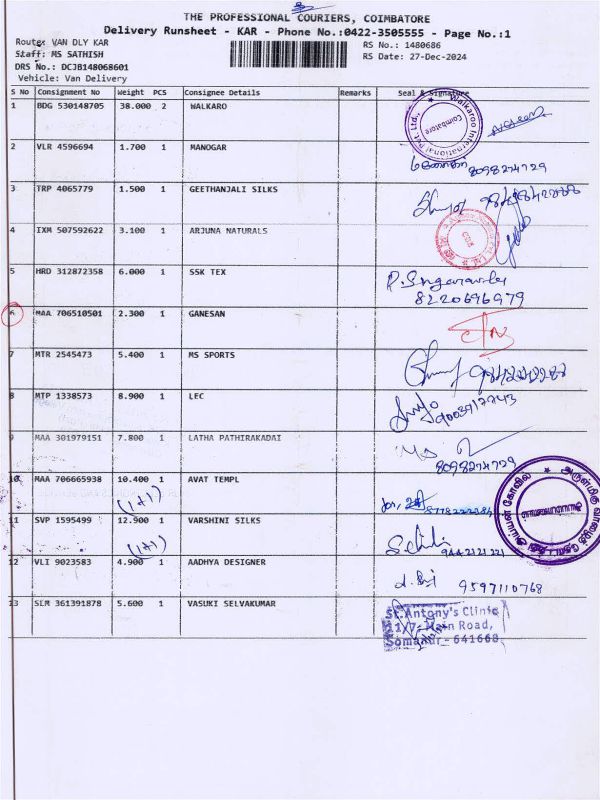 THE PROFESSIONAL COURIERS, COIMBATORE
Delivery Runsheet - KAR - Phone No.:0422-3505555 - Page No.:1
Route: VAN DLY KAR
RS No.: 1480686
Staff: MS SATHISH
RS Date: 27-Dec-2024
DRS No.: DCJB148068601
Vehicle: Van Delivery
S No Consignment No Weight PCS Consignee Details Remarks Seal & Signature
1 BDG 530148705 38.000 2 WALKARO
Walkaroo International Pvt. Ltd., Coimbatore
2 VLR 4596694 1.700 1 MANOGAR
8098274729
3 TRP 4065779 1.500 1 GEETHANJALI SILKS
4 IXM 507592622 3.100 1 ARJUNA NATURALS
5 HRD 312872358 6.000 1 SSK TEX
8220696979
6 MAA 706510501 2.300 1 GANESAN
7 MTR 2545473 5.400 1 MS SPORTS
8 MTP 1338573 8.900 1 LEC
9 MAA 301979151 7.800 1 LATHA PATHIRAKADAI
8098274729
10 MAA 706665938 10.400 1 AVAT TEMPL
(1+1)
11 SVP 1595499 12.900 1 VARSHINI SILKS
(1+1)
9442121221
12 VLI 9023583 4.900 1 AADHYA DESIGNER
9597110768
13 SLM 361391878 5.600 1 VASUKI SELVAKUMAR
St.Antony's Clinic
11/7, Main Road,
Somanur - 641668